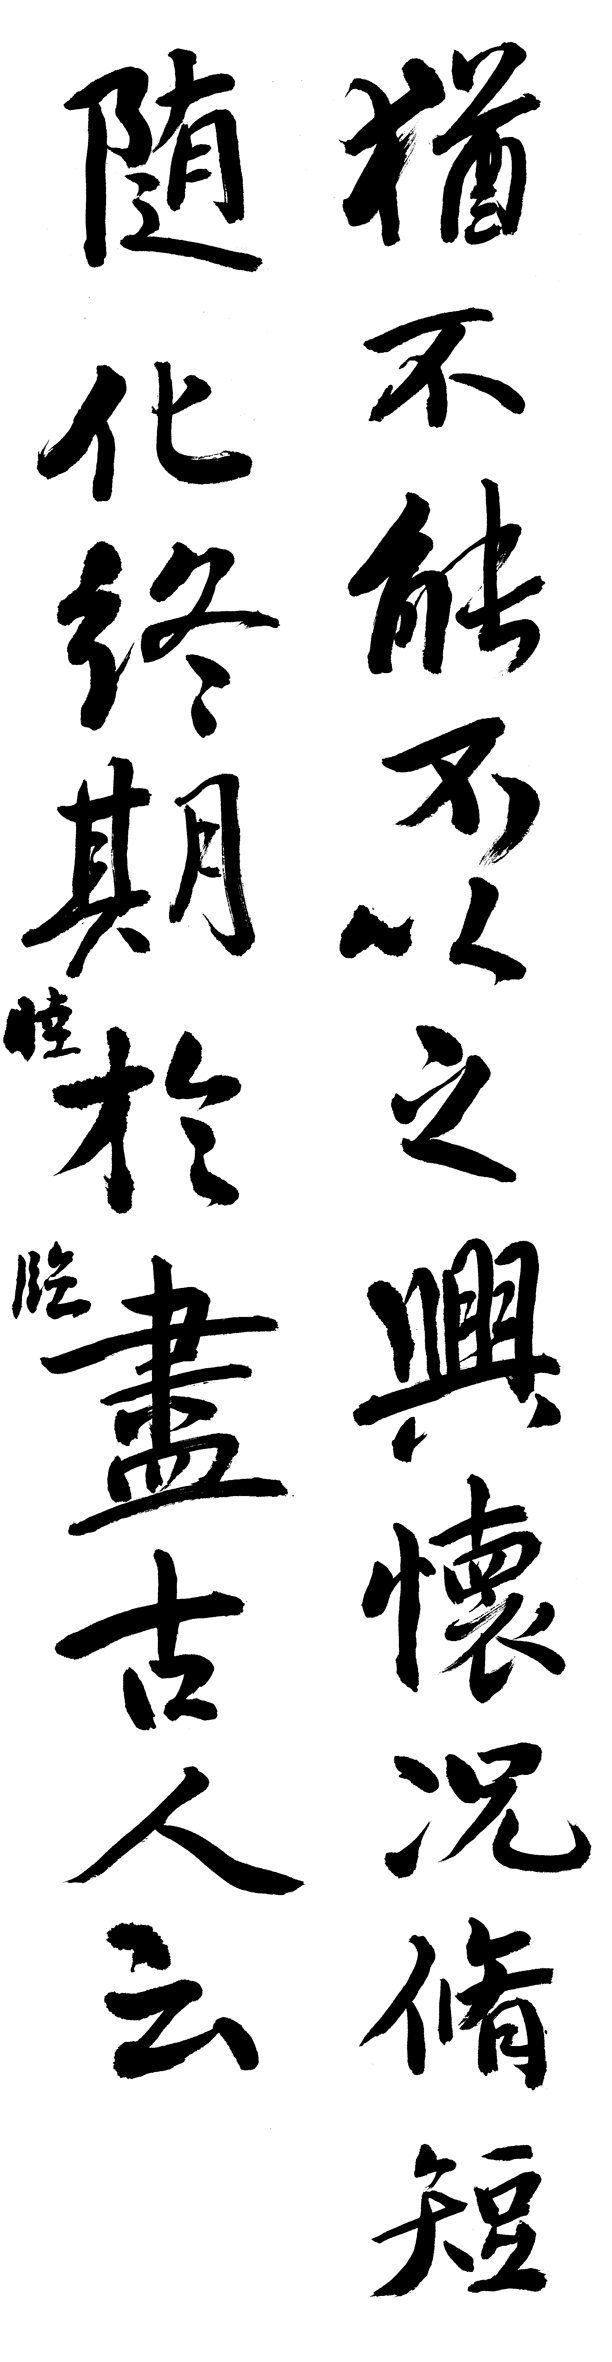 猶不能不以之興懷况脩短
随化終期於盡古人云
睦臨